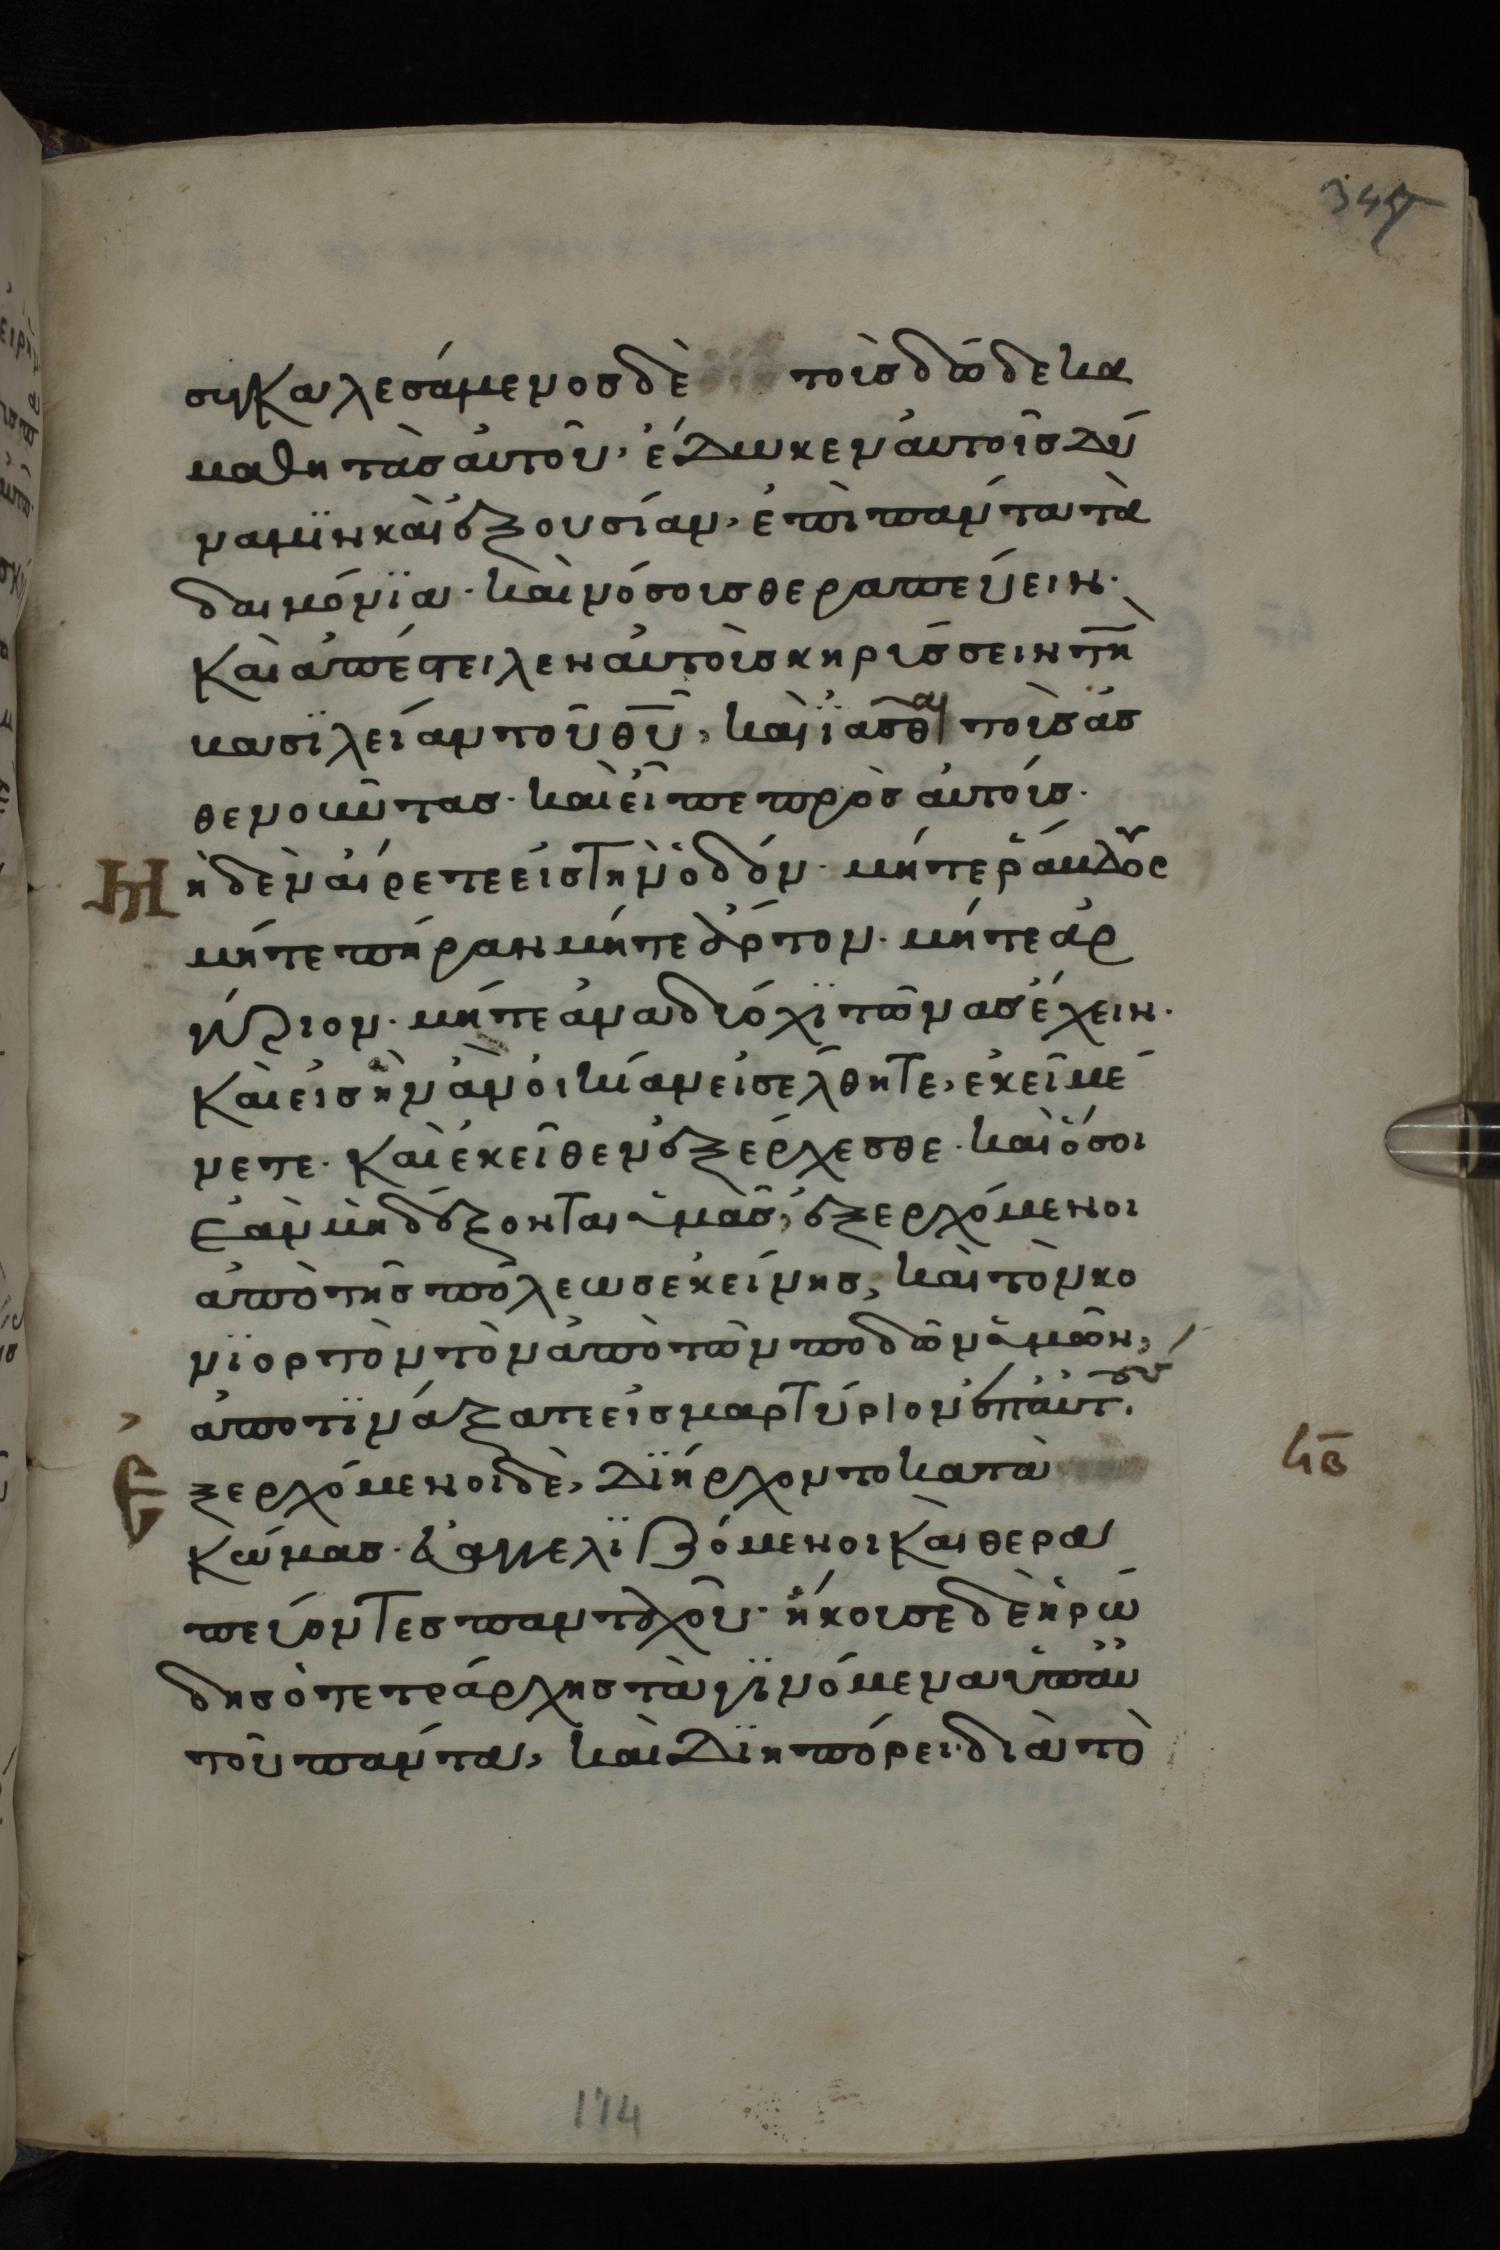 347
συγκαλεσάμενος δὲ τοὺς δώδεκα
μαθητὰς αὐτοῦ, ἔδωκεν αὐτοῖς δύ
ναμϊν καὶ ἐξουσίαν, ἐπὶ πάντα τὰ
δαιμόνϊα· καὶ νόσους θεραπεύειν·
Καὶ ἀπέστειλεν αὐτοὺς κηρύσσειν τὴν
βασϊλείαν τοῦ θυ̅, καὶ ϊᾶσθαι τοὺς ἀσ
θενοῦντας· καὶ εἶπε πρὸς αὐτούς·
Μηδὲν αἴρετε εἰς τὴν ὁδόν· μήτε ῥάβδους
μήτε πήραν μήτε ἄρτον· μήτε ἀρ
γύριον· μήτε ἀνὰ δύο χϊτῶνας ἔχειν·
Καὶ εἰς ἣν ἂν οἰκίαν εἰσέλθητε, ἐκεῖ μέ
νετε· Καὶ ἐκεῖθεν ἐξέρχεσθε· καὶ ὅσοι
ἐὰν μὴ δέξονται ὑμᾶς, ἐξερχόμενοι
ἀπὸ τῆς πόλεως ἐκείνης, καὶ τὸν κο
νϊορτὸν τὸν ἀπὸ τῶν ποδῶν ὑμῶν,
ἀποτϊνάξατε εἰς μαρτύριον ἐπ' αὐτούς.
Ἐξερχόμενοι δὲ, δϊήρχοντο κατὰ
κώμας· εὐαγγελϊζόμενοι καὶ θερα
πεύοντες πανταχοῦ· ἤκουσε δὲ ἡρώ
δης ὁ τετράρχης τὰ γϊνόμενα ὑπ' αὐ
τοῦ πάντα, καὶ δϊηπόρει· διὰ τὸ
174